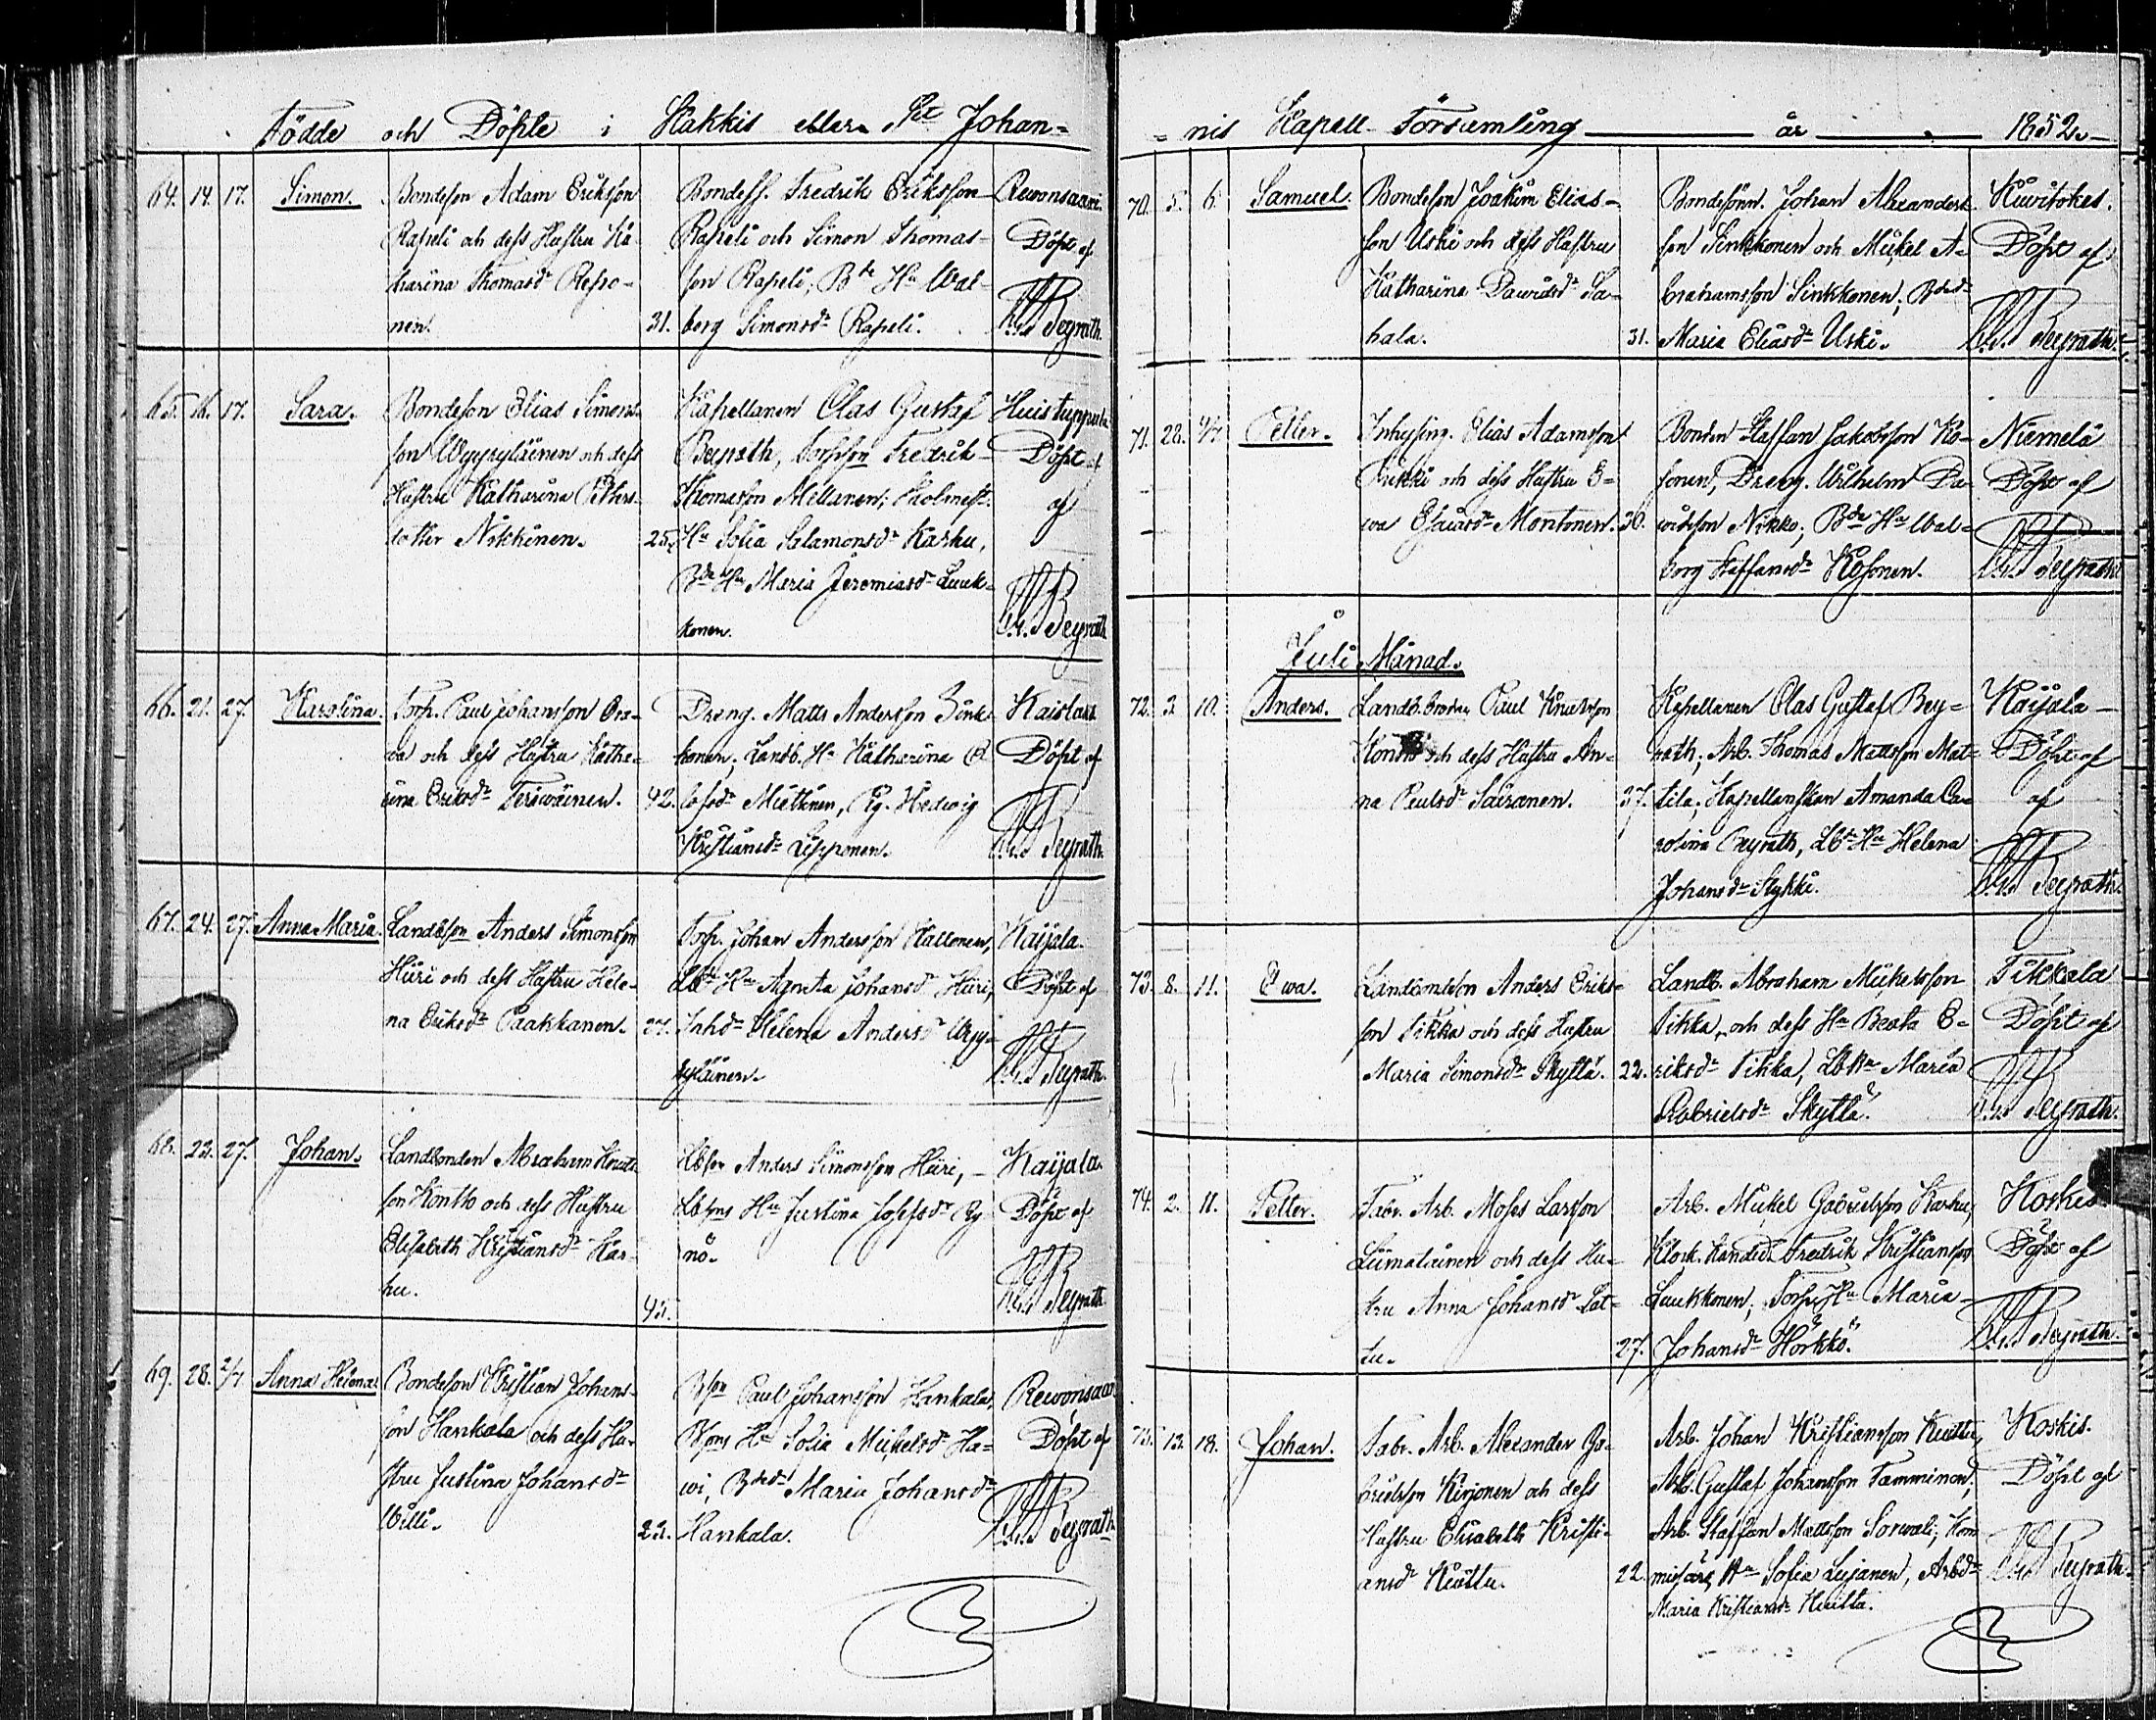 Födde och Döpte i Kakkis eller St Johan=
64. 14. 17. Simon.
Bondeson Adam Eriksson
Rapeli och dess Hustru Ka-
tharina Thomasdr Repo-
nen. 31.
Bondess. Fredrik Eriksson
Rapeli och Simon Thomas-
son Rapeli; Bde Hu Wal-
borg Simonsdr Rapeli.
Rewonsaari.
Döpt af
Beyrath.
65. 16. 17. Sara.
Bondeson Elias Simons-
son Wyyryläinen och dess
Hustru Katharina Petters-
dotter Nikkinen. 25.
Kapellanen Olas Gustaf
Beyrath, Torpson Fredrik
Thomasson Millanen;
Hu Sofia Salamonsdr Karhu,
Bde Hu Maria Jeremiasdr Luuk-
konen.
Döpt af
af
Beyrath
66. 21. 27. Karolina.
Torp. Paul Johansson Ora-
wa och dess Hustru Katha-
rina Eriksdr Terwäinen. 42.
Dreng. Matts Andersson Sink-
konen; Landb. Hu Katharina
Miettinen, Pig. Hedwig
Kristiansdr Lipponen.
Döpt af
Beyrath.
67. 24. 27. Anna Maria.
Landbson Anders Simonsson
Hüri och dess Hustru Hele-
na Eriksdr Paakkanen. 27.
Torp. Johan Andersson Kallonen,
Lbde Hu Agneta Johansdr Hüri,
Inhdr Helena Andersdr Wyy-
ryläinen.
Kaijala.
Döpt af
Beyrath.
68. 22. 27. Johan.
Landbonden Abraham Knuts-
son Kontto och dess Hustru
Elisabeth Kristiansdr Kar-
hu. 45.
Lbson Anders Simonsson Hüri,
Lbsons Hu Justina Josefsdr Ry-
nö.
Kaijala.
Döpt af
Beyrath
69. 28. 2/7 Anna Helena.
Bondeson Kristian Johans-
son Hankala och dess Hu-
stru Justina Johansdr
Willi. 23.
Bson Paul Johansson Hankala,
Bsons Hu Sofia Mickelsdr Ha-
wi, Bdedr Maria Johansdr
Hankala.
Döpt af
Beyrath
= nis Kapell Församling år 1852.
70. 5. 6. Samuel.
Bondeson Joakim Elias-
son Uski och dess Hustru
Katharina Dawidsdr Sa-
hala. 31.
Bondesönn. Johan Alexanders-
son Sinkkonen och Mickel A-
brahamsson Sinkkonen; Bdedr
Maria Eliasdr Uski.
Kuwitokas.
Döpt af
Beyrath.
71. 28. 4/7 Petter.
Inhysing. Elias Adamsson
Pukki och dess Hustru E-
wa Esaiasdr Montonen. 30.
Bonden Staffan Jakobsson Ko-
sonen, Dreng. Wilhelm Da-
widsson Nikko; Bde Hu Wal-
borg Staffansdr Kosonen.
Niemelä
Döpt af
Beyrath
Juli Månad.
72. 3. 10. Anders.
Landb. broder Paul Knutsson
Kontto och dess Hustru An-
na Paulsdr Sairanen. 37.
Kapellanen Olas Gustaf Bey-
rath; Arb. Thomas Mattsson Mat-
tila; Kapellanskan Amanda Ca-
rolina Beyrath, Lbde Hu Helena
Johansdr Stykki.
Kaijala
Döpt af
af
Beyrath.
73. 8. 11. Ewa.
Landbondson Anders Eriks-
son Tikka och dess Hustru
Maria Simonsdr Skyttä. 22.
Landb. Abraham Mickelsson
Tikka, och dess Hu Beata E-
riksdr Tikka, Lb Hu Maria
Gabrielsdr Skyttä.
Tikkala
Döpt af
Beyrath.
74. 2. 11. Petter.
Fabr. Arb. Moses Larsson
Liimatainen och dess Hu-
stru Anna Johansdr Lat-
tu. 27.
Arb. Mickel Gabrielsson Karhu,
Klock. Kandid. Fredrik Kristiansson
Laukkonen; Torp. Hu Maria
Johansdr Hörkkö.
Koskis
Döpt af
Beyrath.
75. 13. 18. Johan.
Fabr. Arb. Alexander Ga-
brielsson Kirjonen och dess
Hustru Elisabeth Kristi-
ansdr Kuittu. 22.
Arb. Johan Kristiansson Kuittu,
Arb. Gustaf Johansson Tamminen,
Arb. Staffan Mattsson Sorwali; Kom
misarie Hu Sofia Lujanen, Arbdr
Maria Kristiansdr Kuittu.
Koskis.
Döpt af
Beyrath.